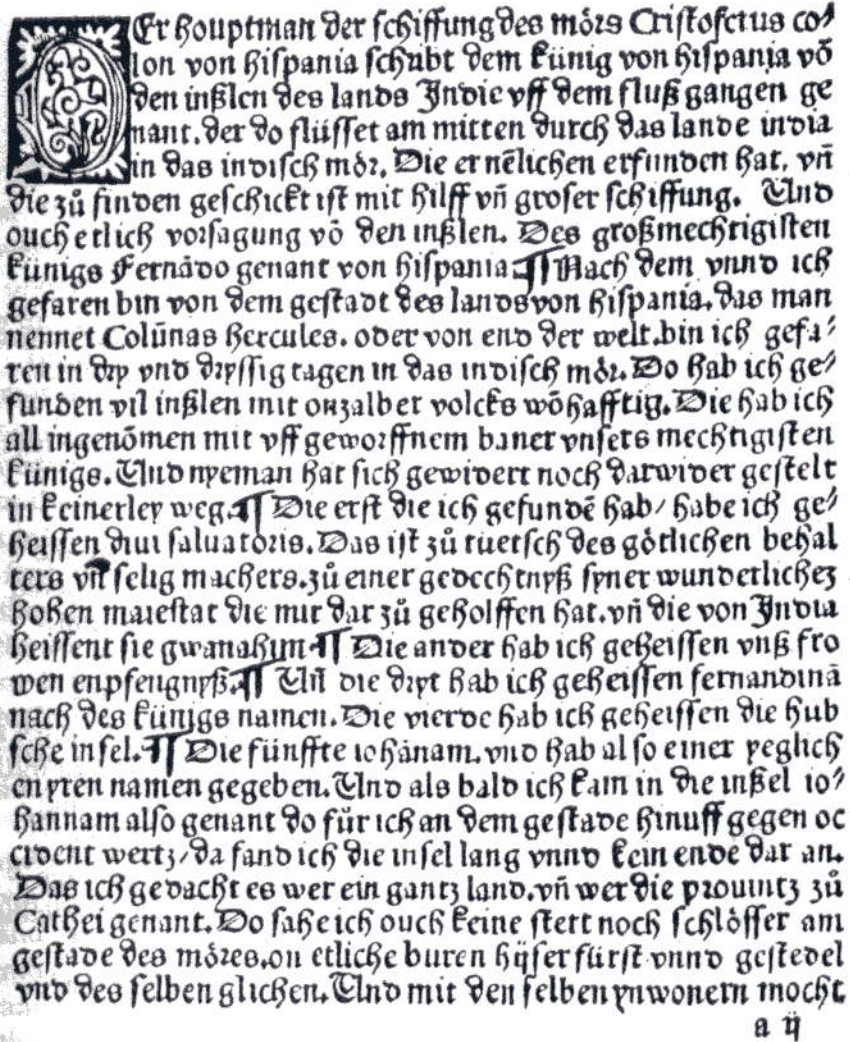 DEr houptman der schiffung des mörs Cristoferus co⸗
lon von hispania schribt dem künig von hispania vō
den inßlen des lands Indie vff dem fluß gangen ge
nant. der do flüsset am mitten durch das lande india
in das indisch mör. Die er nēlichen erfunden hat. vn̄
die zů finden geschickt ist mit hilff vn̄ groser schiffung. Und
ouch etlich vorsagung vō den inßlen. Des großmechtigisten
künigs Fernādo genant von hispania ¶ Nach dem vnnd ich
gefaren bin von dem gestadt des lands von hispania. das man
nennet Colūnas hercules. oder von end der welt. bin ich gefa⸗
ren in dry vnd dryssig tagen in das indisch mör. Do hab ich ge⸗
funden vil inßlen mit onzalber volcks wōhafftig. Die hab ich
all ingenōmen mit vff geworffnem baner vnsers mechtigisten
künigs. Und nyeman hat sich gewidert noch darwider gestelt
in keinerley weg. ¶ Die erst die ich gefundē hab/ habe ich ge⸗
heissen diui saluatoris. Das ist zů tuetsch des götlichen behal
ters vn̄ selig machers. zů einer gedechtnyß syner wunderlichez
hohen maiestat die mir dar zů geholffen hat. vn̄ die von India
heissent sie gwanahyn ¶ Die ander hab ich geheissen vnß fro
wen enpfengnyß. ¶ Un̄ die dryt hab ich geheissen fernandinā
nach des künigs namen. Die vierde hab ich geheissen die hub
sche insel. ¶ Die fünffte iohānam. vnd hab also einer yeglich
en yren namen gegeben. Und als bald ich kam in die inßel io⸗
hannam also genant do für ich an dem gestade hinuff gegen oc
cident wertz/ da fand ich die insel lang vnnd kein ende dar an.
Das ich gedacht es wer ein gantz land. vn̄ wer die prouintz zů
Cathei genant. Do sahe ich ouch keine stett noch schlösser am
gestade des möres. on etliche buren hÿser fürst vnnd gestedel
vnd des selben glichen. Und mit den selben ynwonern mocht
a ij